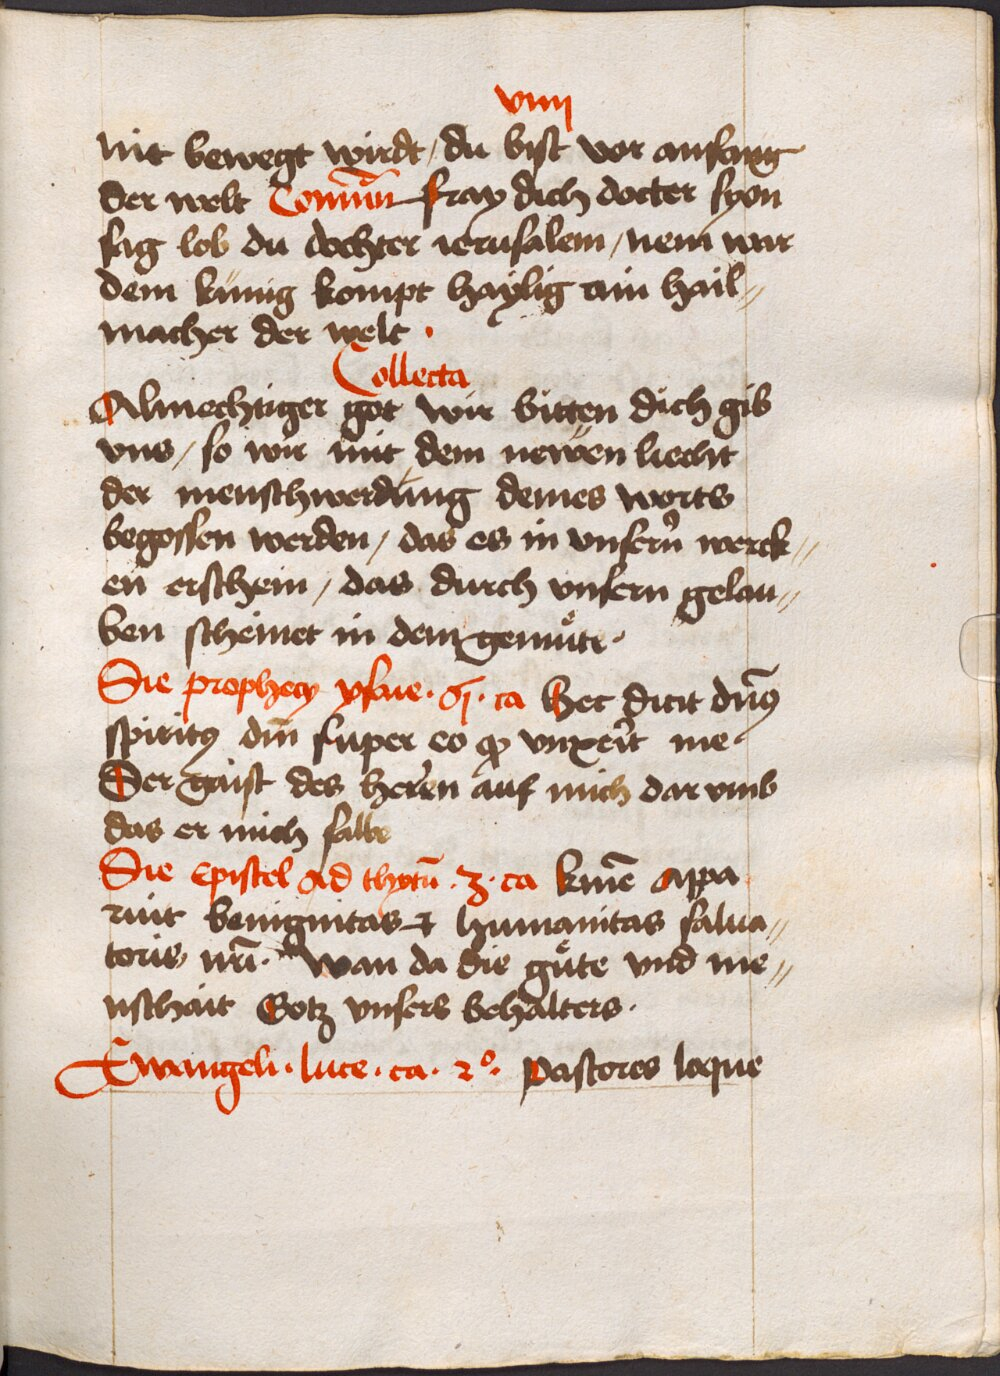 viiij
nit bewegt wirdt / du bist vor anfang
der welt Comūn fray dich docter syon
sag lob du dochter ierusalem / nem war
dem künig kompt haÿlig ain hail〃
macher der welt ·
Collecta
Almechtiger got wir bitten dich gib
vns / so wir mit dem newen liecht
der menschwerdung deines worts
begossen werden / das es in vnsern werck〃
en erschein / das durch vnsern gelau〃
ben scheinet in dem gemuͤte ·
Die prophecy ysaie · ca Hec dicit dn̄s
spiritꝯ dm̄ super eo ꝙ vnxerit me ·
Der gaist des heren auf mich dar vmb
das er mich salbe
Die Epistel Ad thytū · 3 · ca appa
ruit benignitas ⁊ humanitas salua〃
toris nr̄i · Wan da die guͤte vnd me〃
nschait Gotz vnsers behalters ·
Ewangeli · luce · ca · 2° · Pastores loque